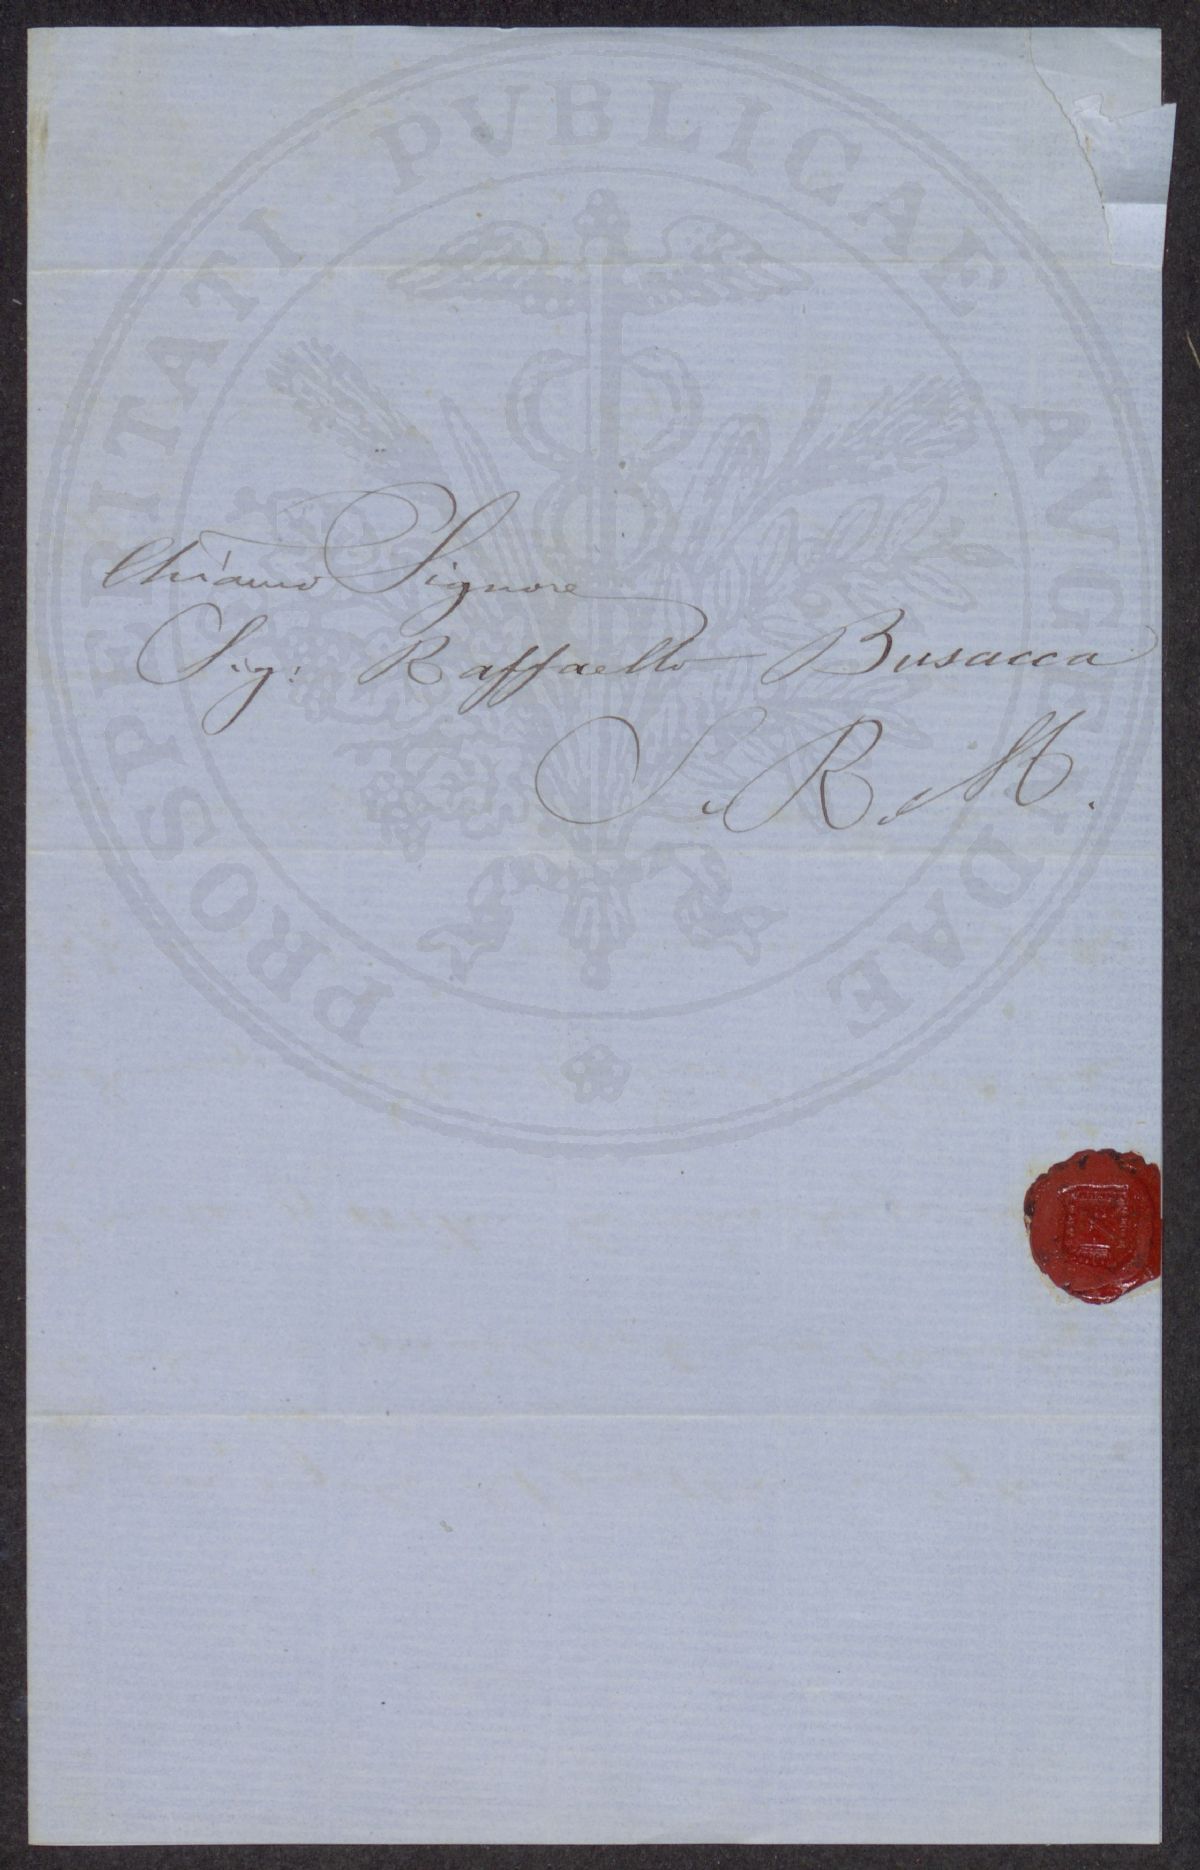 PROSPERITATI PVBLICAE AVGENDAE
Chiarmo Signore
Sig: Raffaello Busacca
S. R. M.